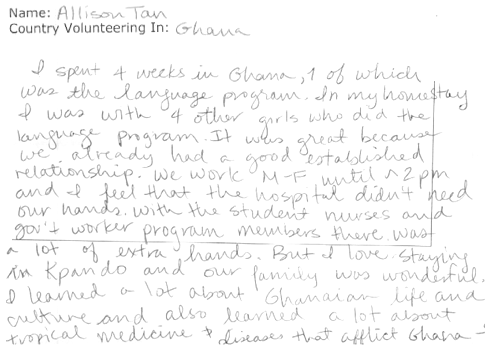 Name: Allison Tan
Country Volunteering In: Ghana
I spent 4 weeks in Ghana, 1 of which
was the language program. In my homestay
I was with 4 other girls who did the
language program. It was great because
we already had a good established
relationship. We work M-F until ~2pm
and I feel that the hospital didn't need
our hands. With the student nurses and
gov't worker program members there was
a lot of extra hands. But I love staying
in Kpando and our family was wonderful.
I learned a lot about Ghanaian life and
culture and also learned a lot about
tropical medicine & diseases that afflict Ghana -